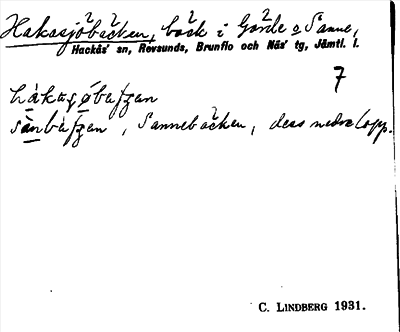 Hakasjöbäcken, bäck i Gärde o Sanne,
Hackås' sn, Revsunds, Brunflo och Näs' tg, Jämtl. l.
7
Sannebäcken, dess nedre lopp.
C. LINDBERG 1931.